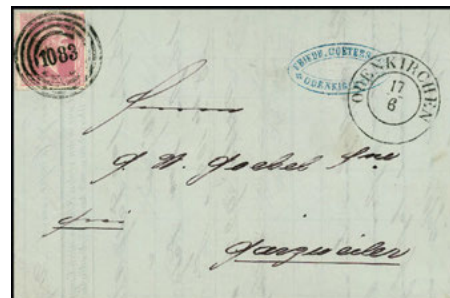 1083
FRIEDR. COETERS
ODENKIRCHEN
ODENKIRCHEN
17
6
Herrn
J. W. Goebel
frei
Garzweiler